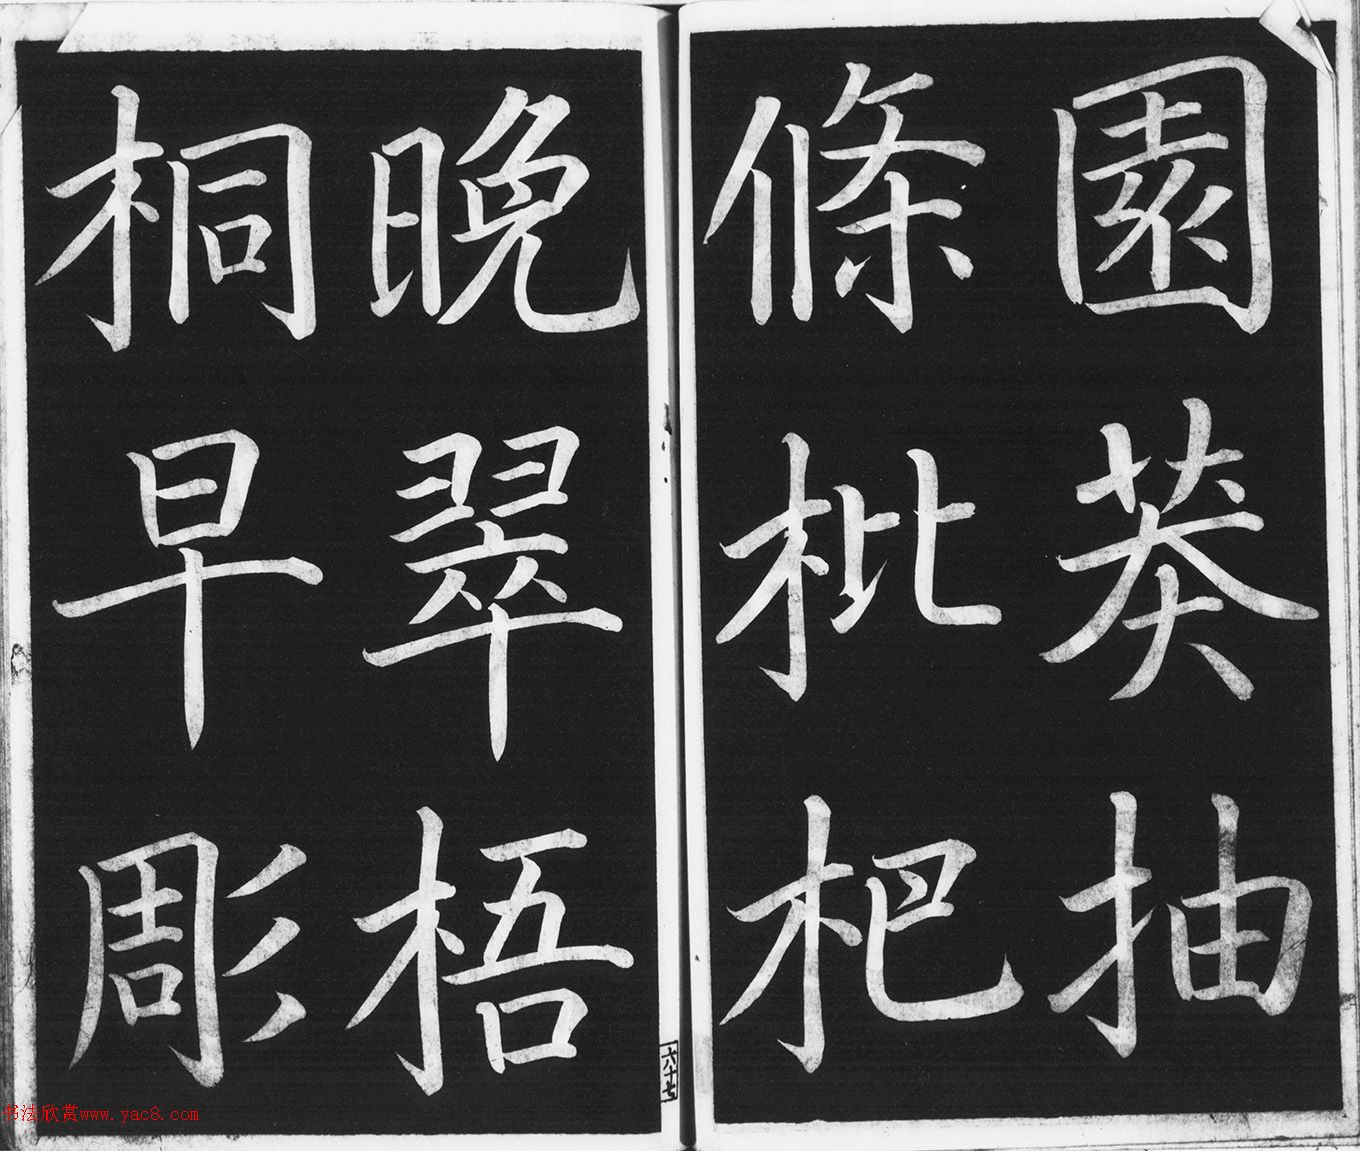 園莽抽
條枇杷
晚翠梧
桐早彫
六十七
书法欣赏www.yac8.com